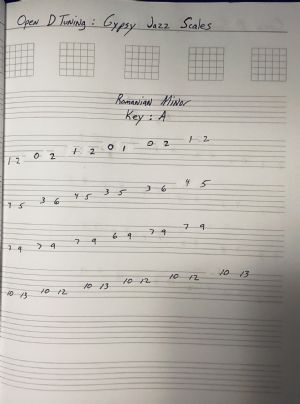 Open D Tuning: Gypsy Jazz Scales
Romanian Minor
Key: A
1 2 0 2 1 2 0 1 0 2 1 2
4 5 3 6 4 5 3 5 3 6 4 5
7 9 7 9 7 9 6 9 7 9 7 9
10 13 10 12 10 13 10 12 10 12 10 13